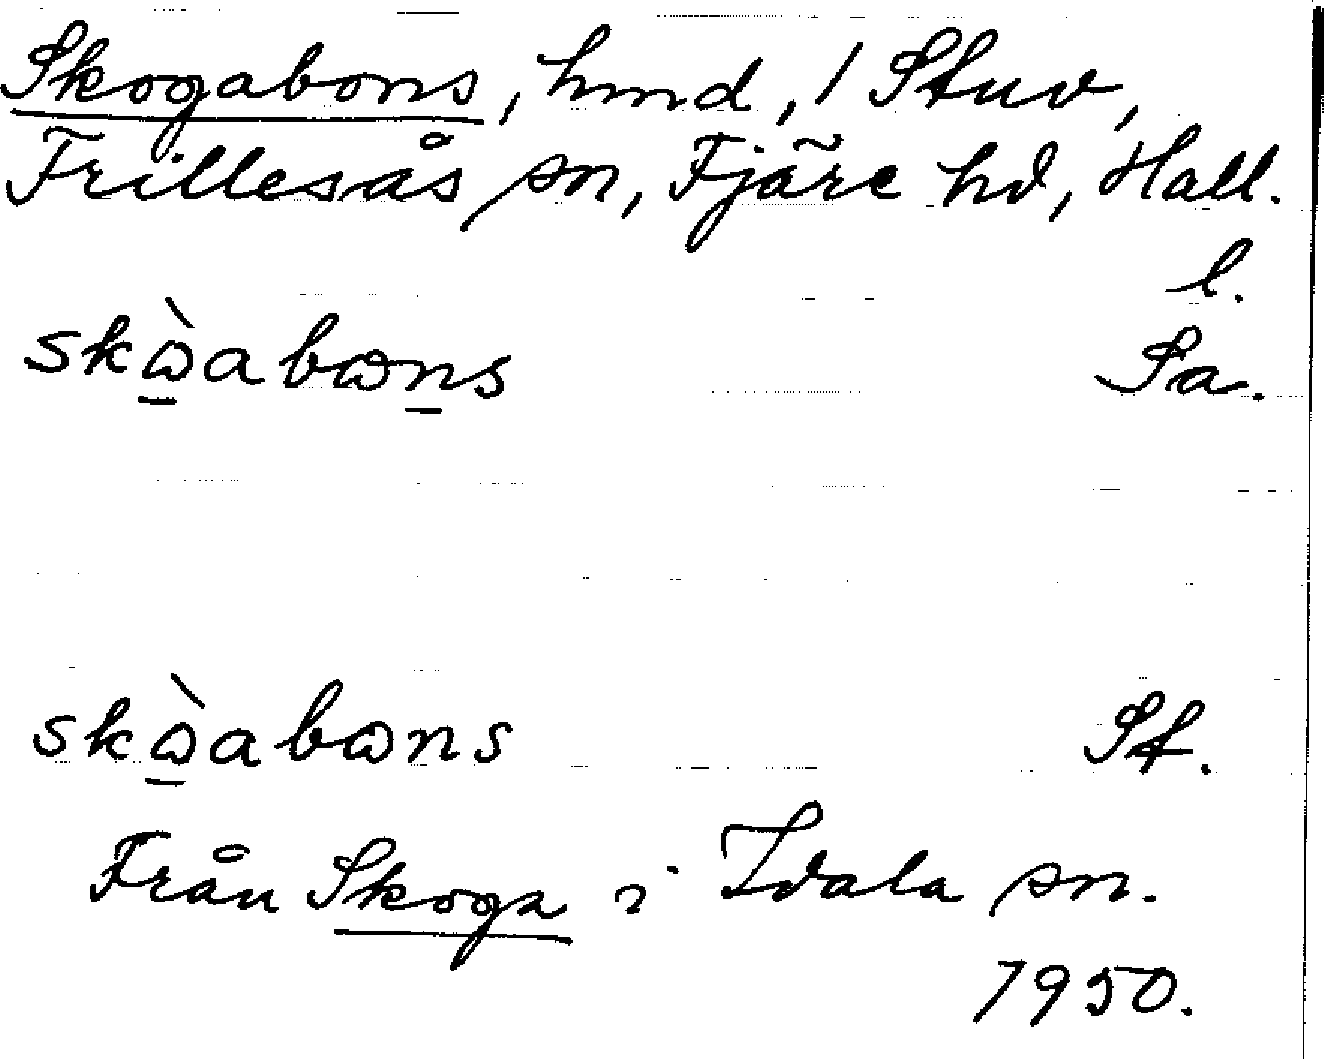 Skogabons, hmd, 1 Stuv,
Frillesås sn, Fjäre hd, Hall.
l.
skὼ̱abωṉs Sa.
skὼ̱abωns St.
Från Skoga i Idala sn.
1950.